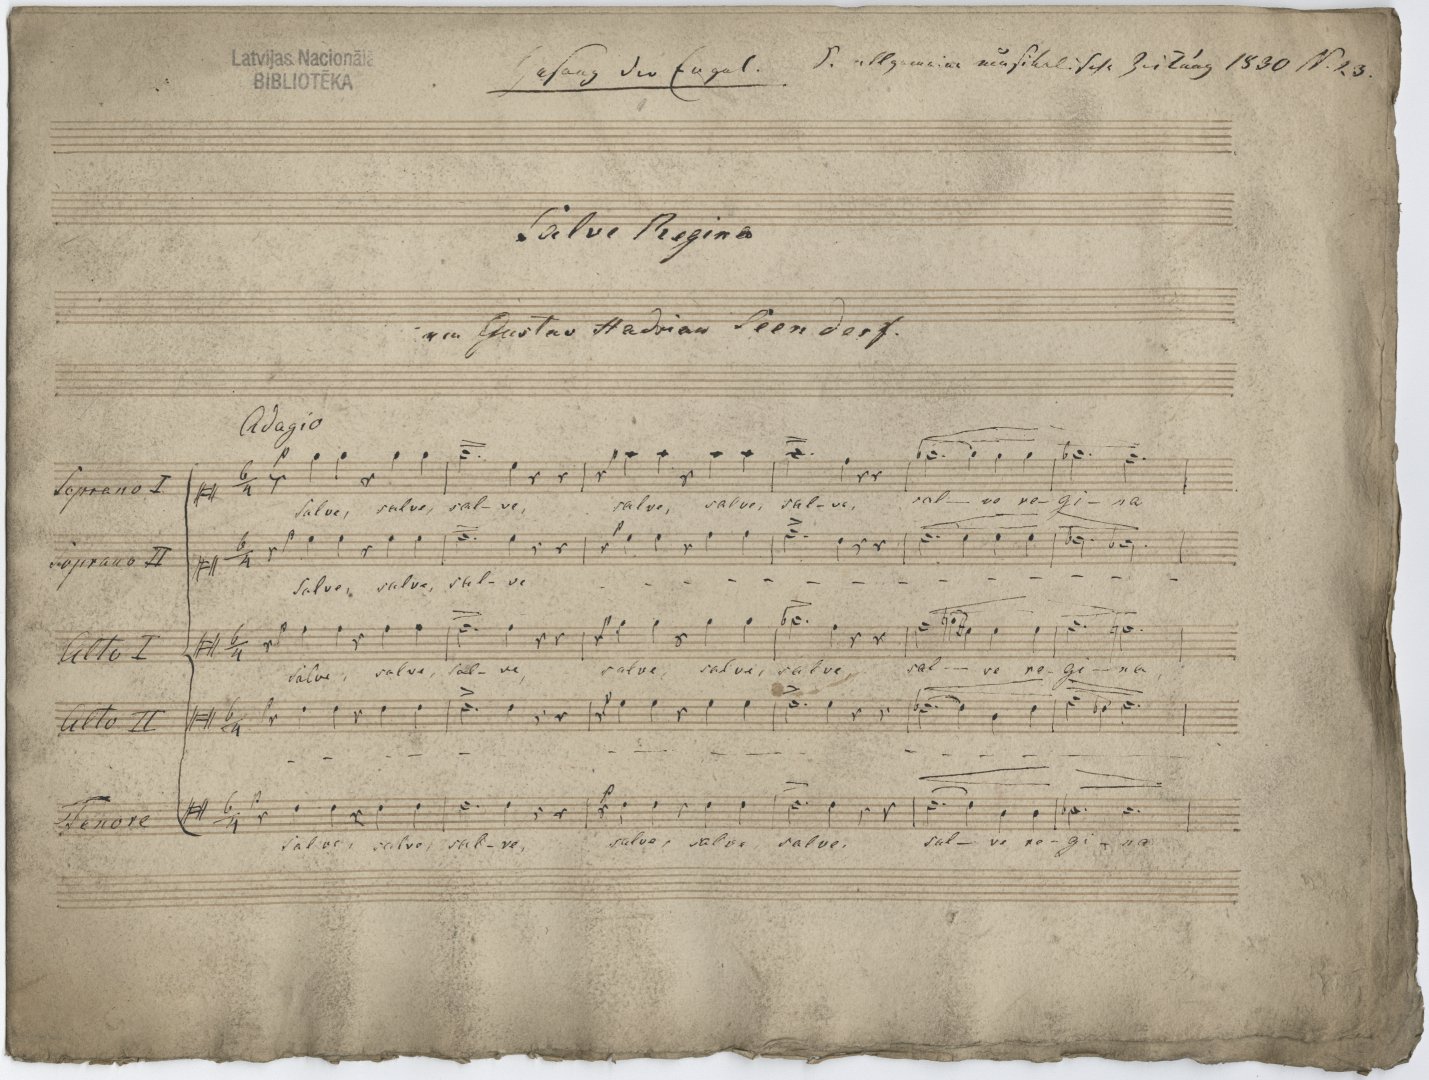 Latvijas Nacionālā
BIBLIOTĒKA
Gesang der Engel.
S. allgemeine musikalische Zeitung 1830 N. 23.
Salve Regina
von Gustav Hadrian Seendorf.
Adagio
Soprano I 6/4
salve, salve, sal- ve, salve, salve, sal- ve, sal- ve re- gi- na
Soprano II 6/4
salve, salve, sal- ve
Alto I 6/4
salve, salve, sal- ve, salve, salve, salve sal- ve re- gi- na,
Alto II 6/4
Tenore 6/4
salve, salve, sal- ve, salve, salve salve, sal- ve re- gi- na